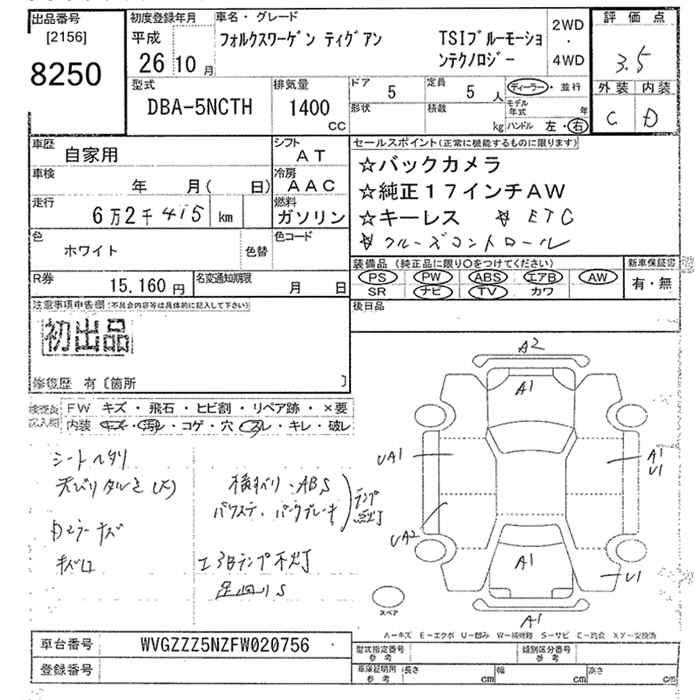 出品番号 [2156] 8250
初度登録年月 平成 26 10 月
車名・グレード
フォルクスワーゲン ティグアン TSIブルーモーショ
ンテクノロジー
2WD
・
4WD
評価点
3.5
外装 内装
C D
型式
DBA-5NCTH
排気量
1400
CC
ドア 5
定員 5 人
ディーラー・並行
形状
積数 kg
モデル年式 年
ハンドル 左・右
車歴
自家用
シフト
AT
車検 年 月( 日)
冷房
AAC
走行 6万2千415 km
燃料
ガソリン
色 ホワイト 色替
色コード
R券 15.160円
名変通知期限 月 日
セールスポイント(正常に機能するものに限ります)
☆バックカメラ
☆純正17インチAW
☆キーレス ☆ETC
☆クルーズコントロール
装備品 (純正品に限り○をつけてください)
新車保証書
PS PW ABS エアB AW
SR ナビ TV カワ
有・無
後日品
注意事項申告欄(不具合内容等は具体的に記入して下さい)
初出品
修復歴 有〔箇所 〕
検査員記入欄
FW キズ・飛石・ヒビ割・リペア跡・×要
内装 キズ・汚れ・コゲ・穴・スレ・キレ・破レ
シートヘタリ
天バリタルミ(大)
横すべり・ABS
パワステ、パークブレーキ
ランプ点灯
Dミラーキズ
キズ口
エアBランプ不灯
足回りS
A2
A1
UA1
A1
U1
UA2
A1
U1
A1
スペア
A-キズ E-エクボ U-凹み W-補修跡 S-サビ C-腐食 X,Y-交換済
車台番号 WVGZZZ5NZFW020756
登録番号
型式指定番号 参考
類別区分番号 参考
車庫証明用 参考
長さ cm
幅 cm
高さ cm